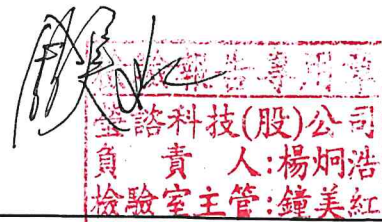 報告專用章
瑩諮科技(股)公司
負責人:楊炯浩
檢驗室主管:鐘美紅